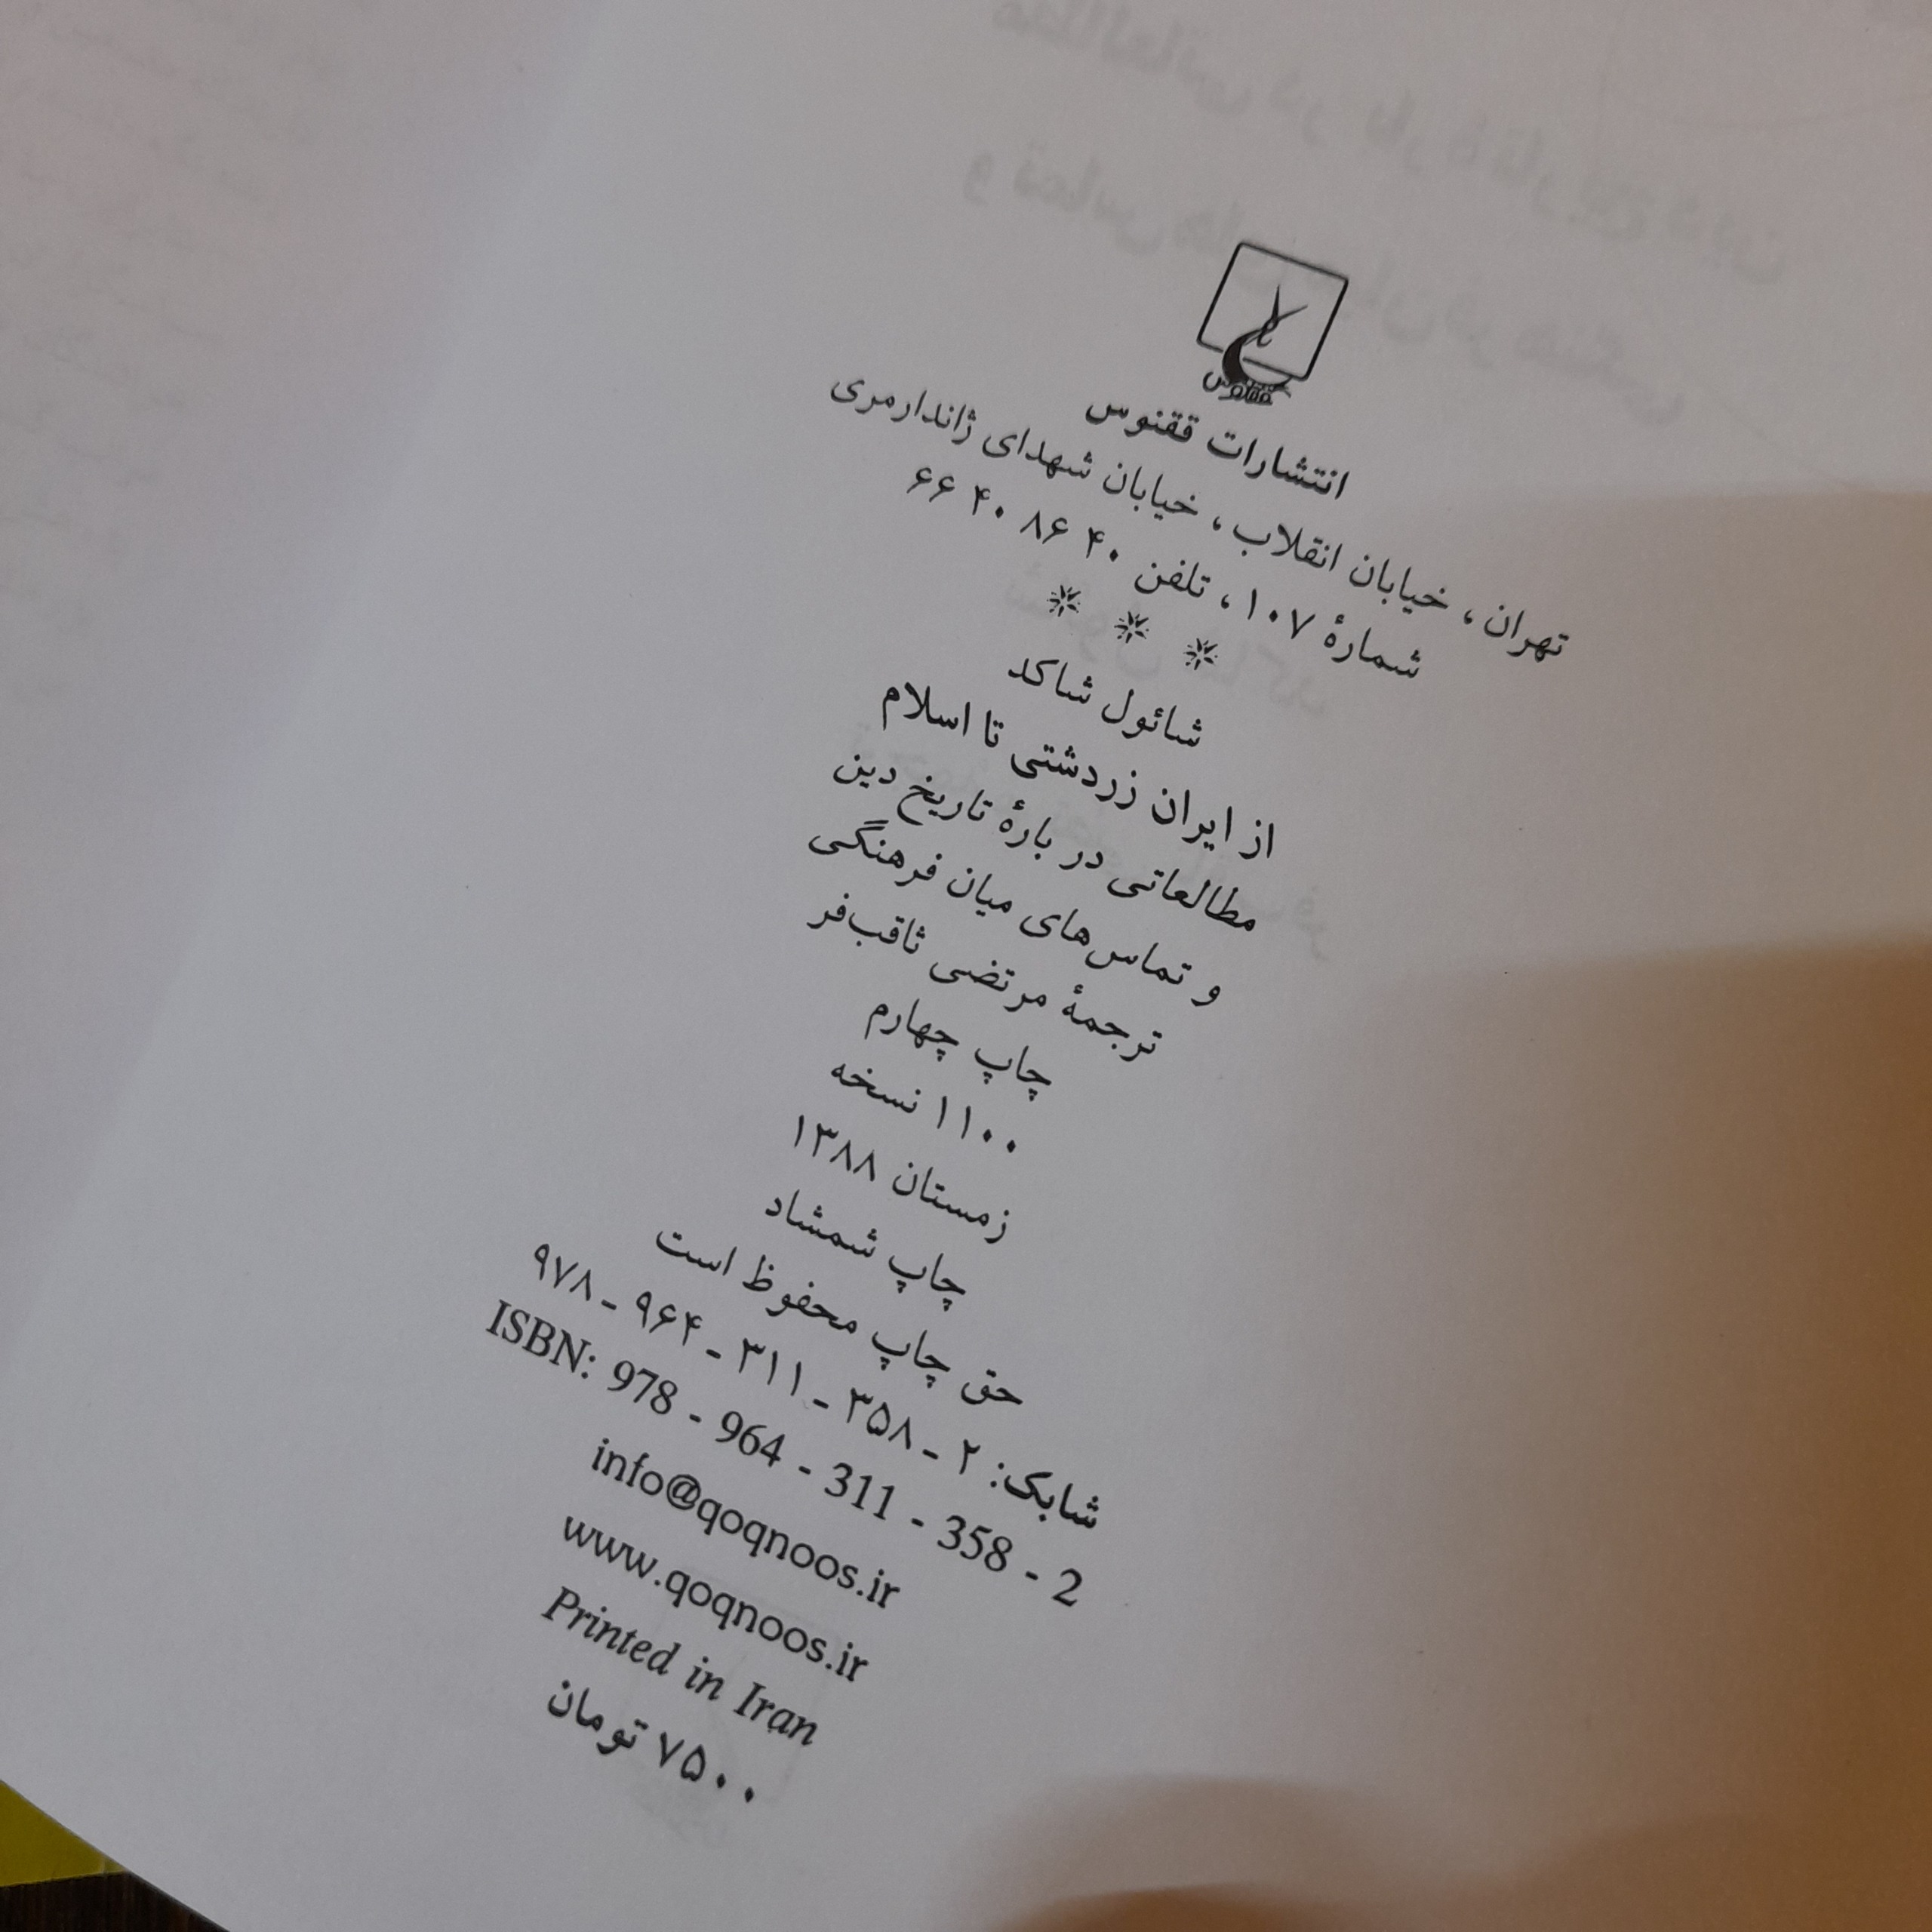 ققنوس
انتشارات ققنوس
تهران، خیابان انقلاب، خیابان شهدای ژاندارمری
شمارهٔ ۱۰۷، تلفن ۴۰ ۸۶ ۴۰ ۶۶
* * *
شائول شاکد
از ایران زردشتی تا اسلام
مطالعاتی در بارهٔ تاریخ دین
و تماس‌های میان فرهنگی
ترجمهٔ مرتضی ثاقب‌فر
چاپ چهارم
۱۱۰۰ نسخه
زمستان ۱۳۸۸
چاپ شمشاد
حق چاپ محفوظ است
شابک: ۲ - ۳۵۸ - ۳۱۱ - ۹۶۴ - ۹۷۸
ISBN: 978 - 964 - 311 - 358 - 2
info@qoqnoos.ir
www.qoqnoos.ir
Printed in Iran
۷۵۰۰ تومان